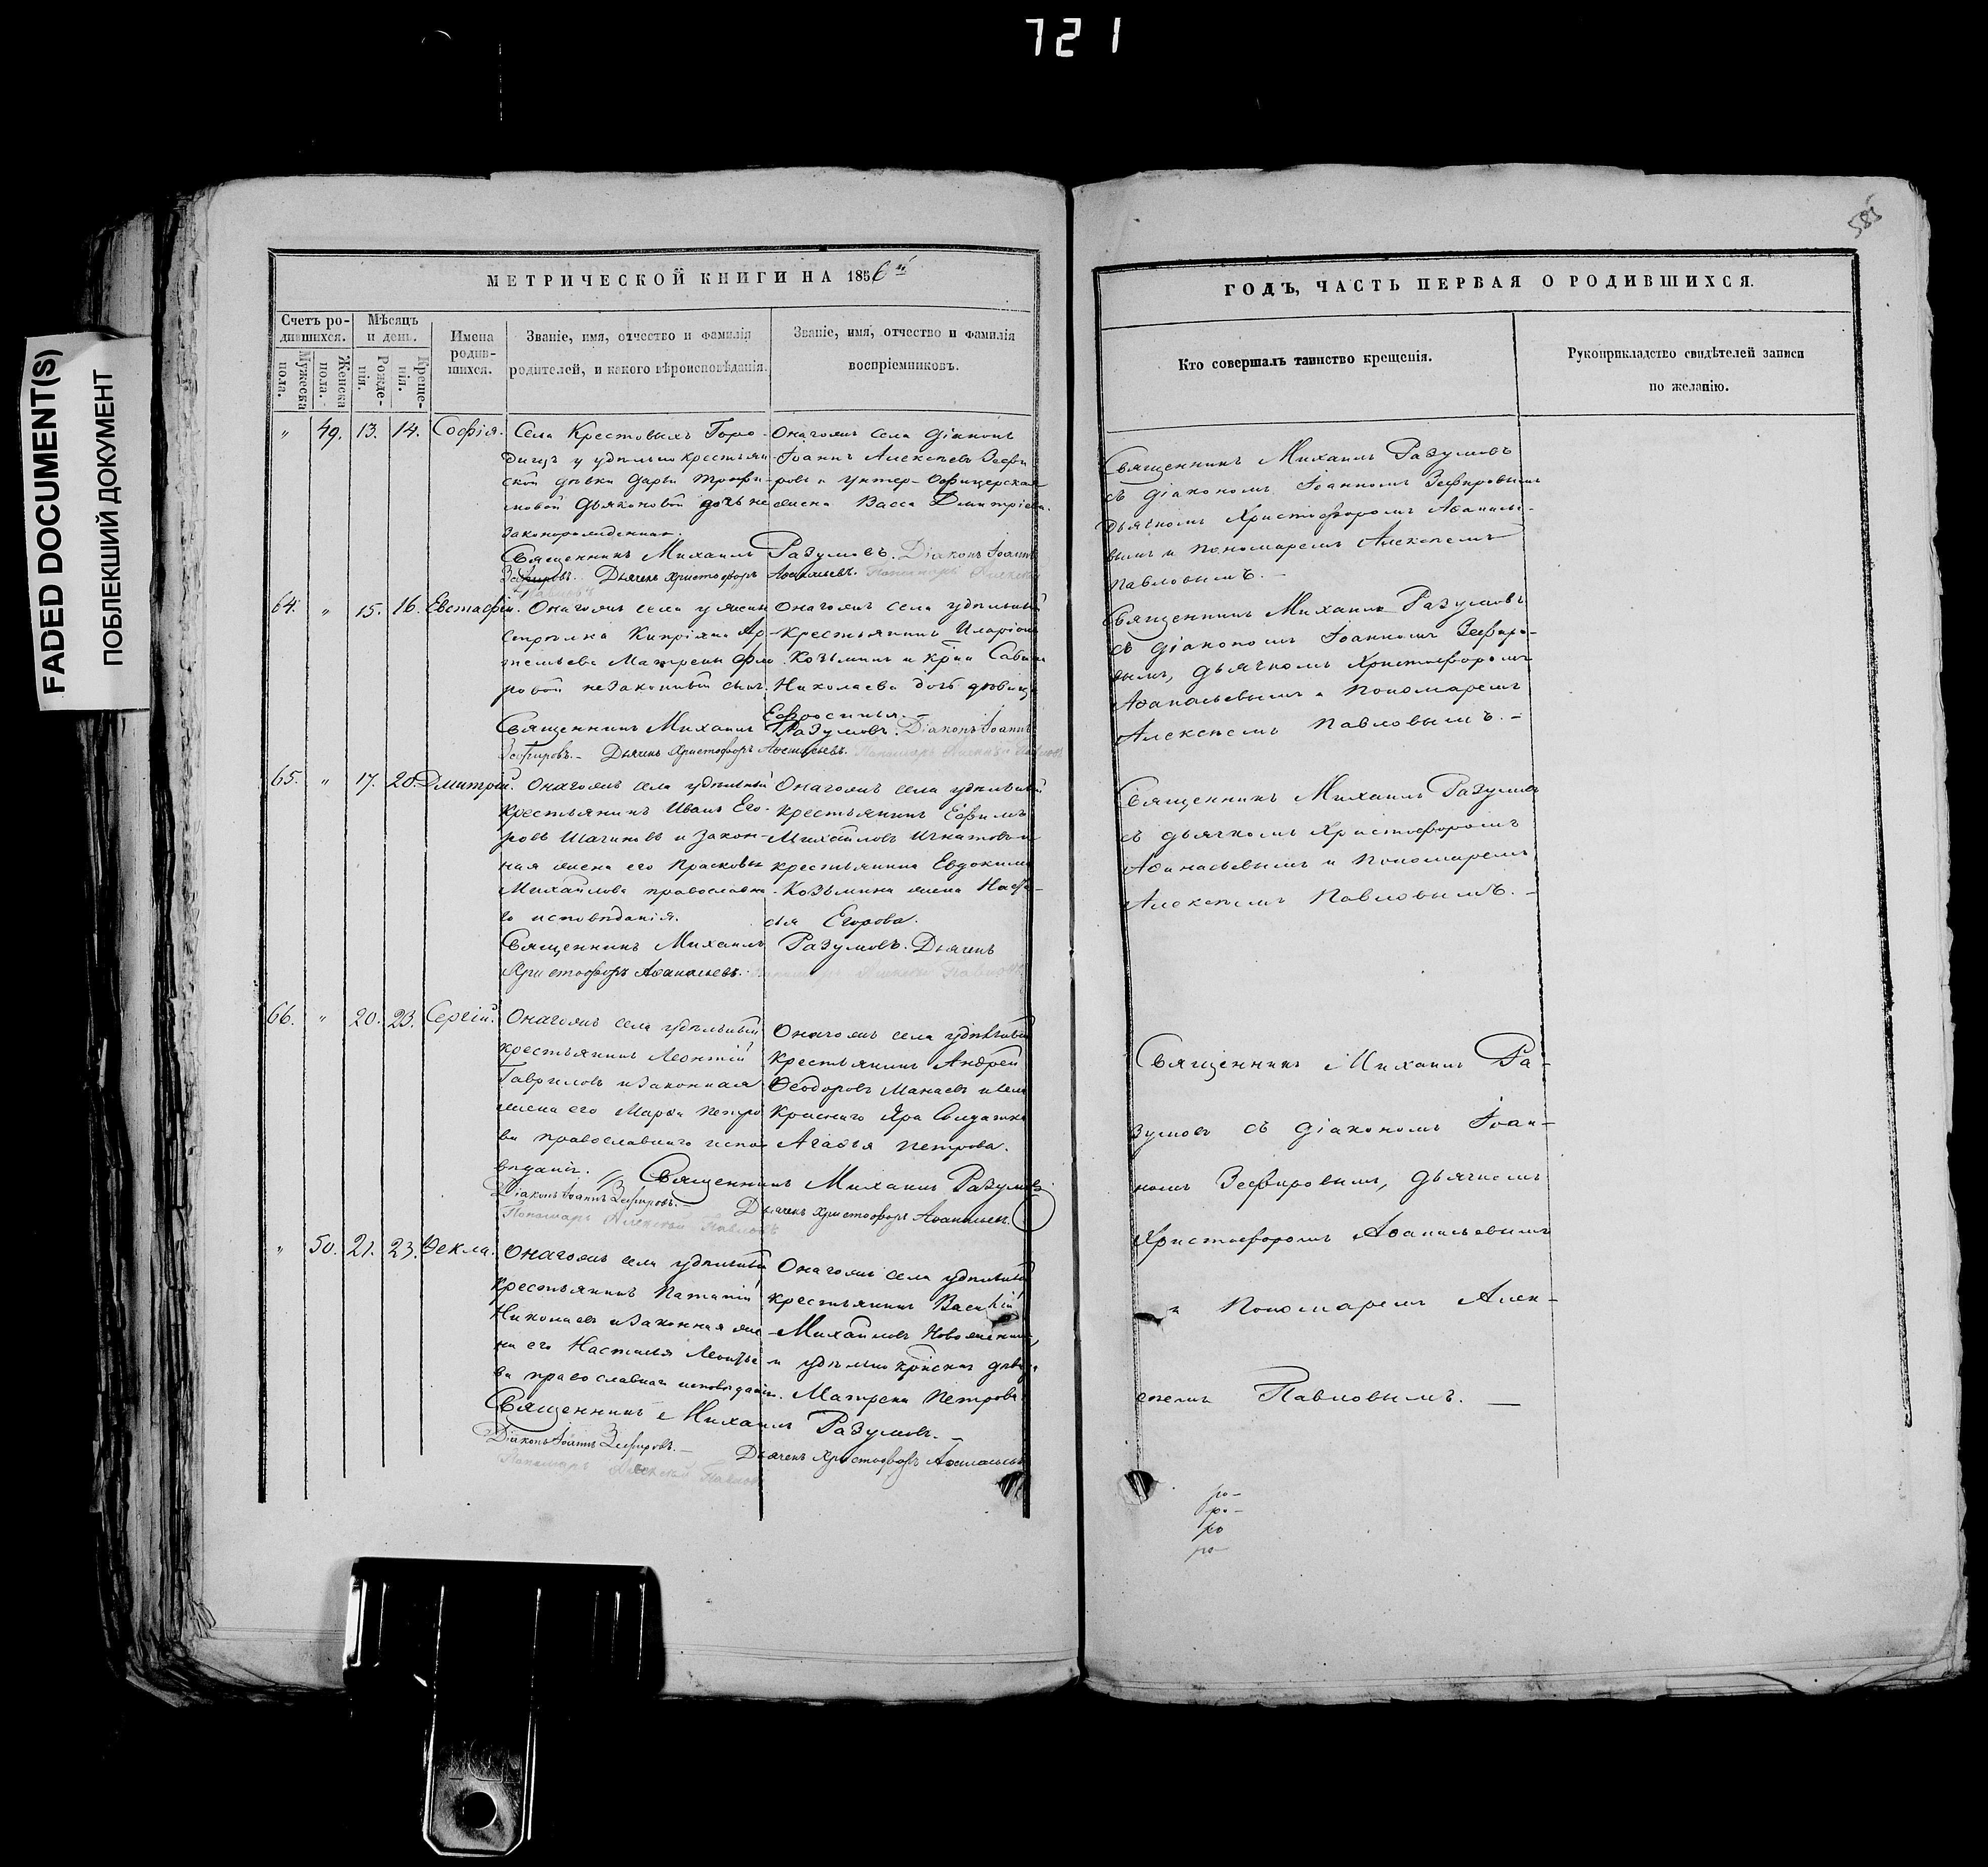 721
FADED DOCUMENT(S)
ПОБЛЕКШИЙ ДОКУМЕНТ
585
МЕТРИЧЕСКОЙ КНИГИ НА 1856й
Счетъ родившихся.
Мужеска пола.
Женска пола.
Мѣсяцъ и день.
Рожденія.
Крещенія.
Имена родившихся.
Званіе, имя, отчество и фамилія
родителей, и какого вѣроисповѣданія.
Званіе, имя, отчество и фамилія
воспріемниковъ.
" 49. 13. 14. Софія.
Села Крестовыхъ Горо-
дищъ у удѣльно крестьян-
ской дѣвки Дарьи Трофи-
мовой Дьяконовой дочь не
законорожденная.
Онагожъ села Діаконъ
Іоаннъ Алексѣевъ Зефи
ровъ и Унтер-Офицерская
жена Васса Дмитріева.
Священникъ Михаилъ Разумовъ. Діаконъ Іоаннъ
Зефировъ. Дьячекъ Христофоръ Аѳанасьевъ. Пономарь Алексѣй
Павловъ
64. " 15. 16. Евстафій.
Онагожъ села у жены
стрѣлка Кипріяна Ар-
темьева Матрены Фло
ровой незаконный сынъ.
Онагожъ села удѣльный
крестьянинъ Иларіонъ
Козьминъ и кр̃на Савы
Николаева дочь дѣвица
Ефросинья.
Священникъ Михаилъ Разумовъ. Діаконъ Іоаннъ
Зефировъ. – Дьячекъ Христофоръ Аѳанасьевъ. Пономарь Алексѣй Павловъ
65. " 17. 20. Дмитрій.
Онагожъ села удѣльный
крестьянинъ Иванъ Его-
ровъ Шагинъ и закон-
ная жена его Прасковья
Михайлова православна-
го исповѣданія.
Онагожъ села удѣльный
крестьянинъ Ефимъ
Михайловъ Игнатовъ и
крестьянина Евдокима
Козьмина жена Наста-
сья Егорова.
Священникъ Михаилъ Разумовъ. Дьячекъ
Христофоръ Аѳанасьевъ. Пономарь Алексѣй Павловъ
66. " 20. 23. Сергій.
Онагожъ села удѣльный
крестьянинъ Леонтій
Гавриловъ и законная
жена его Марѳа Петро
ва православнаго испо
вѣданія.
Онагожъ села удѣльный
крестьянинъ Андрей
Ѳеодоровъ Манаевъ и села
Краснаго Яра Солдатка
Агаѳья Петрова.
Священникъ Михаилъ Разумовъ
Діаконъ Іоаннъ Зефировъ. – Дьячекъ Христофоръ Аѳанасьевъ.
Пономарь Алексѣй Павловъ
" 50. 21. 23. Ѳекла.
Онагожъ села удѣльный
крестьянинъ
Николаевъ и законная же
на его Настасья Леонтье
ва православнаго исповѣданія.
Онагожъ села удѣльный
крестьянинъ Василій
Михайловъ
и удѣльно кр̃нская дѣвица
Матрена Петрова
Священникъ Михаилъ Разумовъ. –
Діаконъ Іоаннъ Зефировъ. – Дьячекъ Христофоръ Аѳанасьевъ
Пономарь Алексѣй Павловъ
ГОДЪ, ЧАСТЬ ПЕРВАЯ О РОДИВШИХСЯ.
Кто совершалъ таинство крещенія.
Рукоприкладство свидѣтелей записи
по желанію.
Священникъ Михаилъ Разумовъ
съ діакономъ Іоанномъ Зефировымъ
дьячкомъ Христофоромъ Аѳанась-
вымъ и пономаремъ Алексѣемъ
Павловымъ. –
Священникъ Михаилъ Разумовъ
съ діакономъ Іоанномъ Зефиро-
вымъ, дьячкомъ Христофоромъ
Аѳанасьевымъ и Пономаремъ
Алексѣемъ Павловымъ. –
Священникъ Михаилъ Разумовъ
съ дьячкомъ Христофоромъ
Аѳанасьевымъ и Пономаремъ
Алексѣемъ Павловымъ. –
Священникъ Михаилъ Ра-
зумовъ съ діакономъ Іоан-
номъ Зефировымъ, дьячкомъ
Христофоромъ Аѳанасьевымъ
и Пономаремъ Алек-
сѣемъ Павловымъ. —
ро-
ро-
ро
ро-